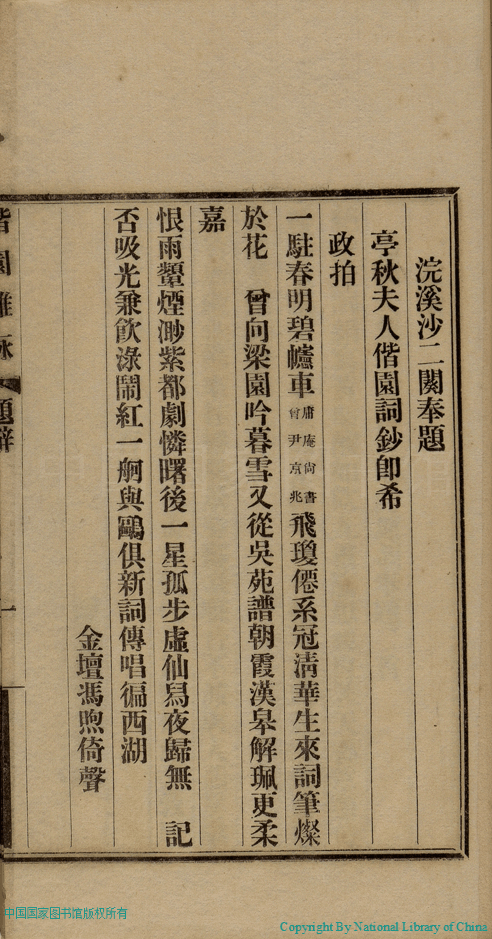 浣溪沙二闋奉題
亭秋夫人偕園詞鈔卽希
政拍
一駐春明碧幰車庸庵尙書曾尹京兆飛瓊僊系冠淸華生來詞筆燦
於花　曾向梁園吟暮雪又從吳苑譜朝霞漢皋解珮更柔
嘉
恨雨顰煙渺紫都劇憐曙後一星孤步虛仙舄夜歸無　記
否吸光兼飮淥鬧紅一舸與鷗俱新詞傳唱徧西湖
金壇馮煦倚聲
偕園雜詠
題辭
一
中国国家图书馆版权所有
Copyright By National Library of China